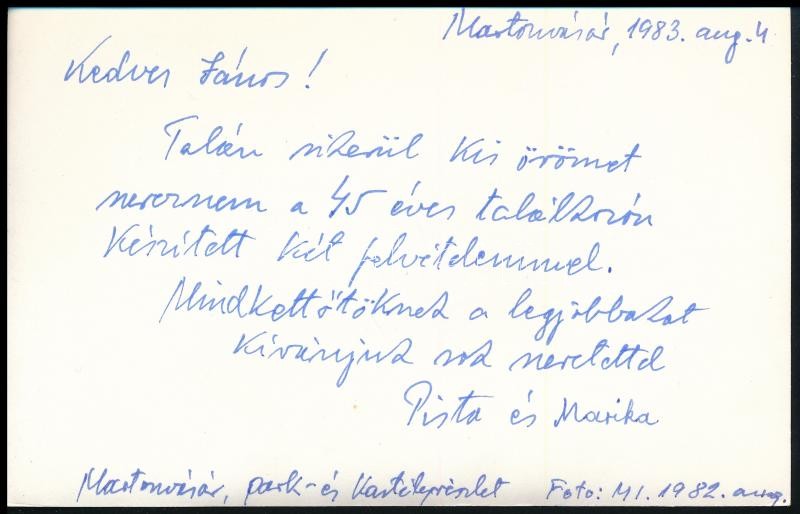 Martonvásár, 1983. aug. 4
Kedves János!
Talán sikerül kis örömet
szereznem a 45 éves találkozón
készített két felvételemmel.
Mindkettőtöknek a legjobbakat
kívánjuk sok szeretettel
Pista és Marika
Martonvásár, park- és kastélyrészlet Foto: MI. 1982. aug.